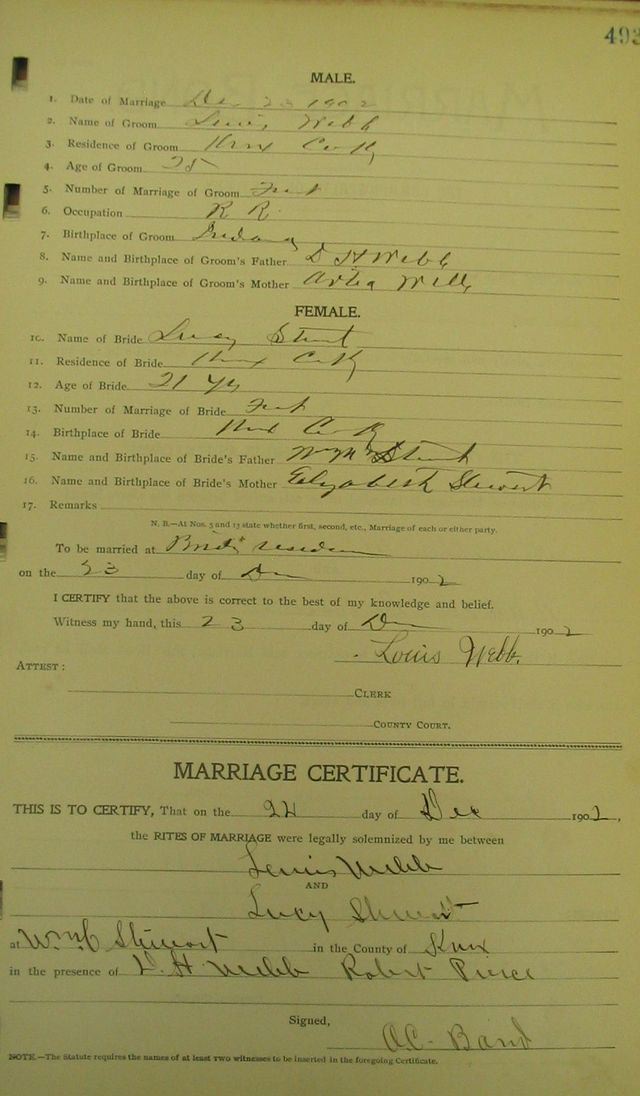 493
MALE.
1. Date of Marriage Dec 23 1902
2. Name of Groom Lewis Webb
3. Residence of Groom Knox Co Ky
4. Age of Groom 25
5. Number of Marriage of Groom First
6. Occupation R R
7. Birthplace of Groom Indiana
8. Name and Birthplace of Groom's Father D H Webb
9. Name and Birthplace of Groom's Mother
FEMALE.
10. Name of Bride Lucy
11. Residence of Bride Knox Co Ky
12. Age of Bride 21 yrs
13. Number of Marriage of Bride First
14. Birthplace of Bride Knox Co Ky
15. Name and Birthplace of Bride's Father
16. Name and Birthplace of Bride's Mother Elizabeth Stewart
17. Remarks
N. B.—At Nos. 5 and 13 state whether first, second, etc., Marriage of each or either party.
To be married at Brides residence
on the 23 day of Dec 1902
I CERTIFY that the above is correct to the best of my knowledge and belief.
Witness my hand, this 23 day of Dec 1902
Louis Webb.
ATTEST:
CLERK
COUNTY COURT.
MARRIAGE CERTIFICATE.
THIS IS TO CERTIFY, That on the 24 day of Dec 1902,
the RITES OF MARRIAGE were legally solemnized by me between
Lewis Webb
AND
Lucy
at in the County of Knox
in the presence of D. H. Webb Robert
Signed,
NOTE.—The Statute requires the names of at least two witnesses to be inserted in the foregoing Certificate.